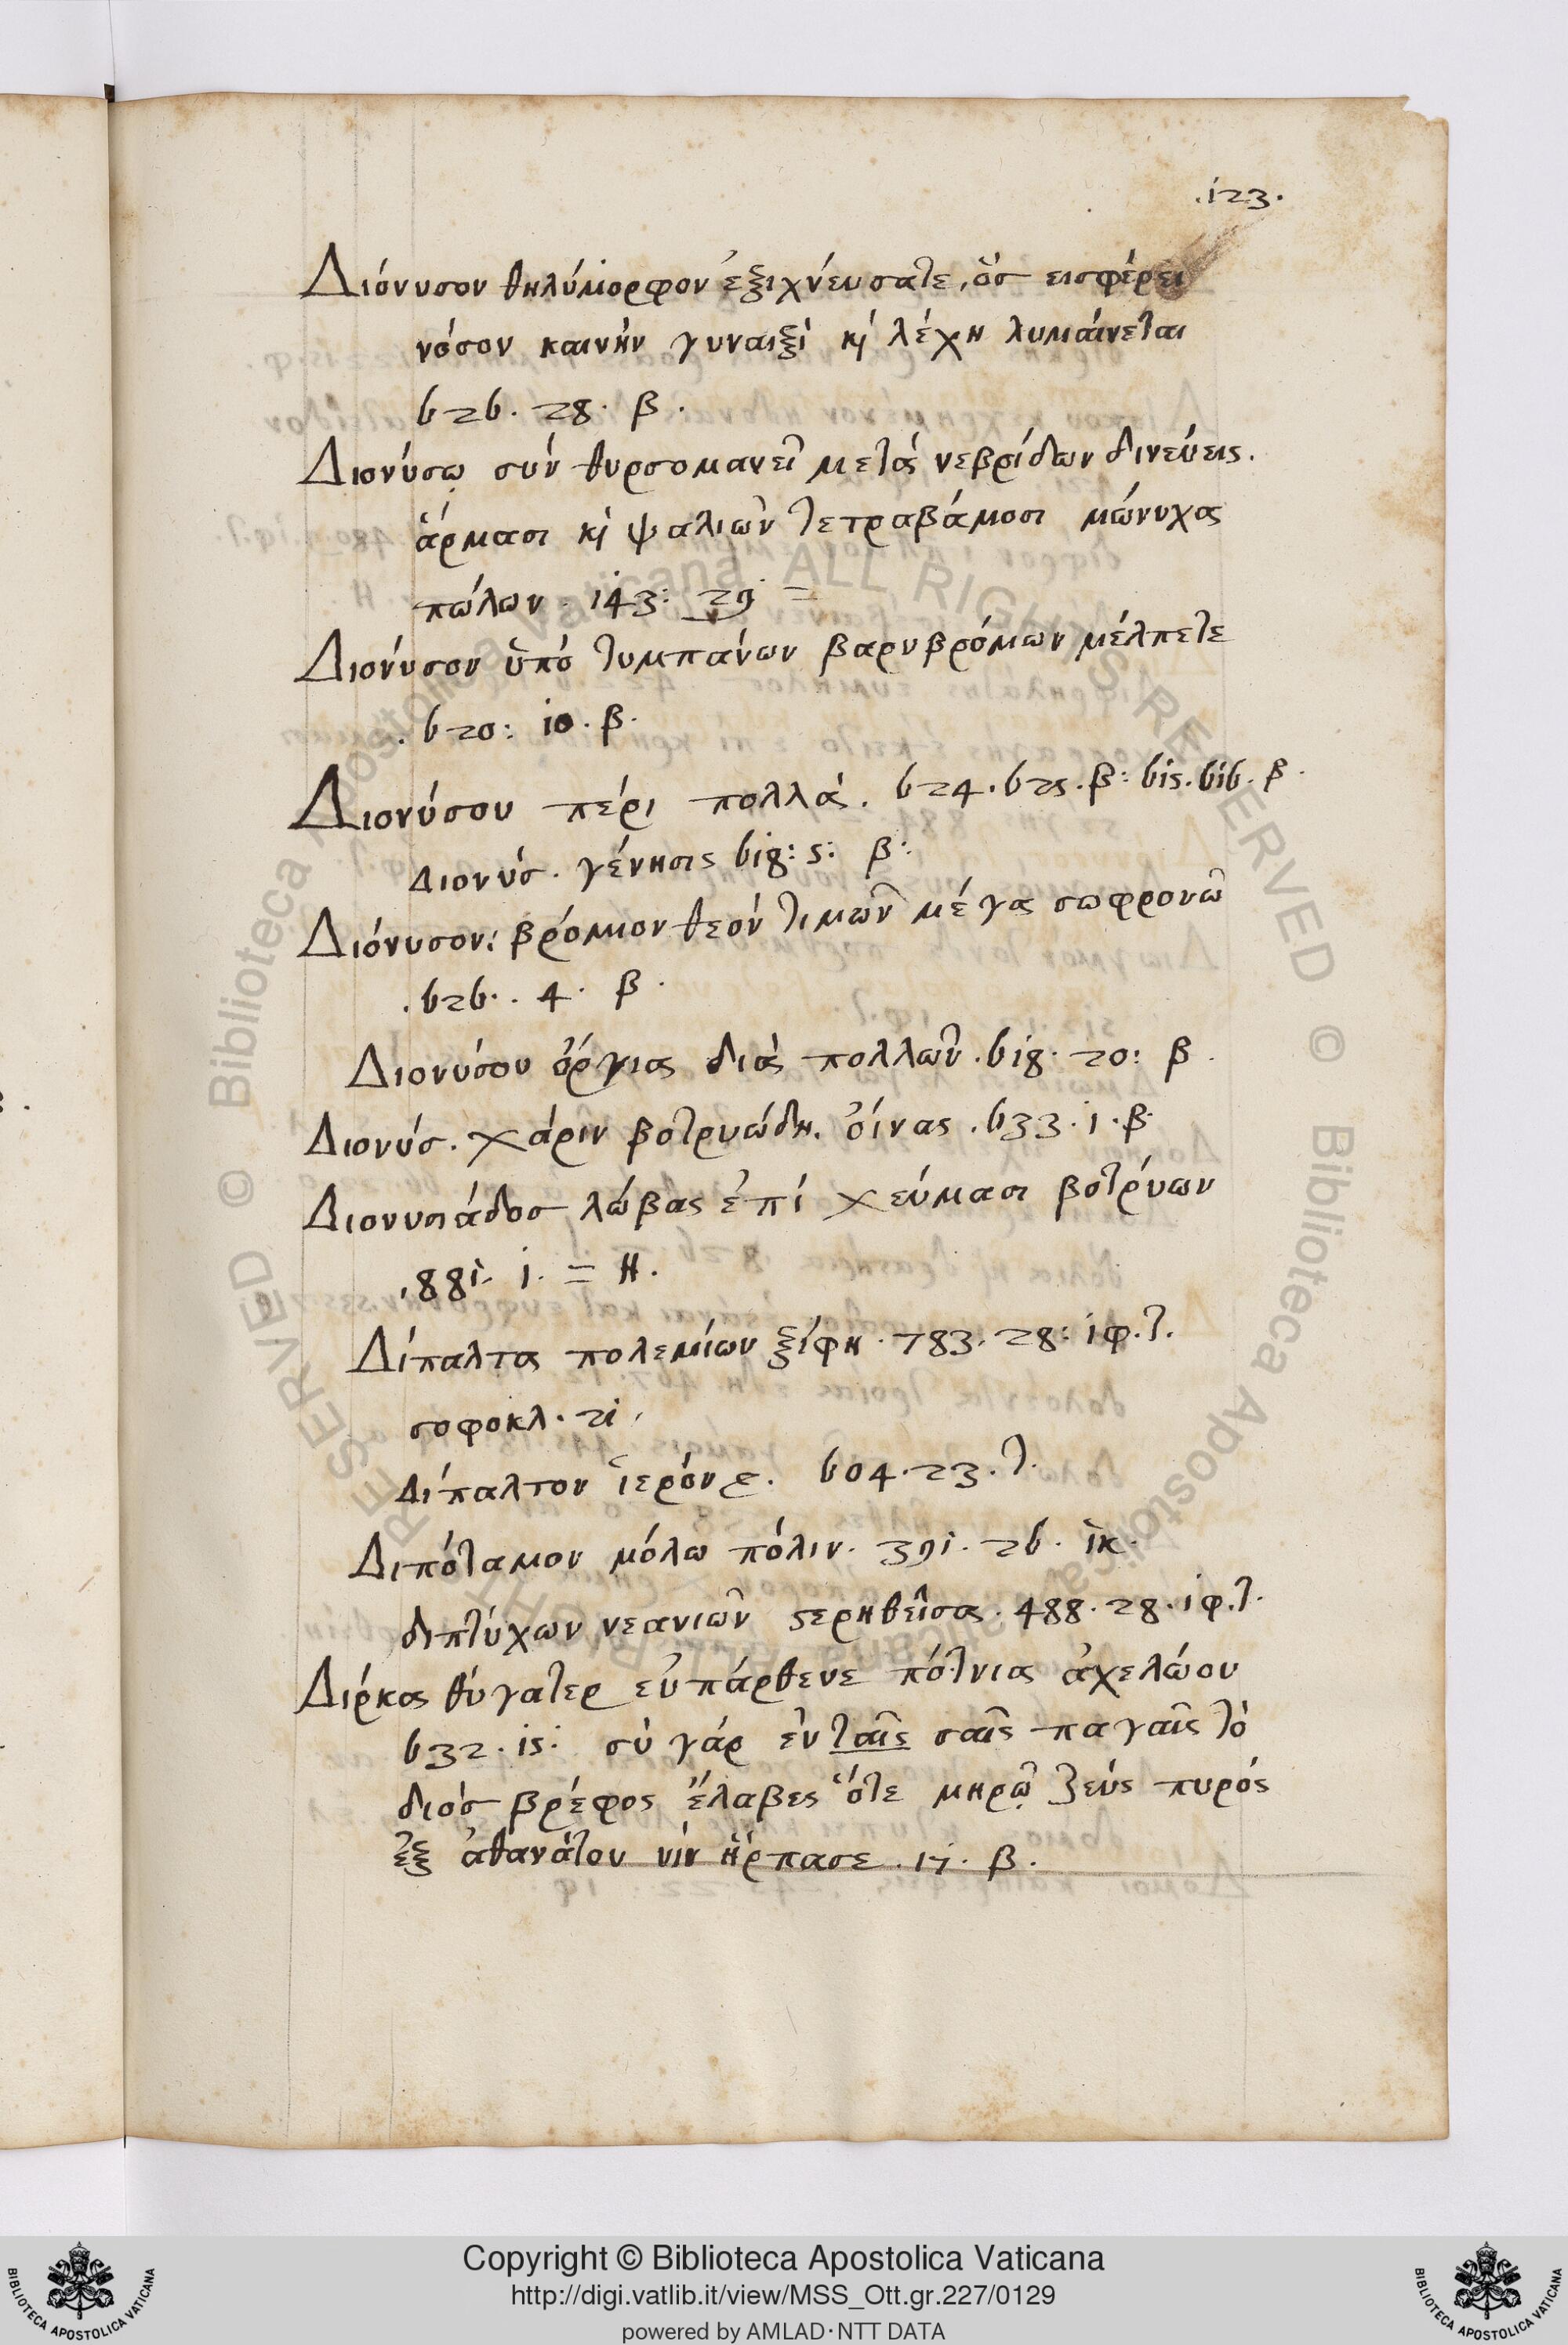 .123.
Διόνυσον θηλύμορφον ἐξιχνέυσατε, ὃσ εισφέρει
νόσον καινὴν γυναιξὶ κὶ λέχη λυμάινεται
626. 28. β.
Διονύσῳ σὺν θυρσομανεῖ μετὰ νεβρίδων δινεύεις.
ἅρμασι κὶ ψαλιῶν τετραβάμοσι μώνυχα
πώλων. 143: 29 =
Διονύσον ὑπὸ τυμπάνων βαρυβρόμων μέλπετε
. 620: 10. β.
Διονύσου πέρι πολλά. 624. 625. β: 615. 616. β.
Διονύσ. γένησις 618: 5: β:
Διόνυσον: βρόμιον θεὸν τιμῶν μέγα σωφρονῶ
.626. . 4. β.
Διονύσου ὄργια διὰ πολλῶν. 618. 20: β.
Διονύσ. χάριν βοτρυώδη. ὀίνας. 633. 1. β.
Διονυσιάδοσ λώβας ἐπὶ χεύμασι βοτρύων
,881. 1. = Η.
Δίπαλτα πολεμίων ξίφη. 783. 28: ιφ.τ.
σοφοκλ. 21,
Δίπαλτον ἱερόν 604. 23. τ.
Διπόταμον μόλω πόλιν. 391. 26. ἱκ.
διπτύχων νεανιῶν στερηθεῖσα. 488. 28. ιφ.τ.
Δίρκα θύγατερ εὐπάρθενε πότνια ἀχελώου
632. 15: σὺ γάρ ἐν ταῖς σαῖς παγαῖς τὸ
διὸσ βρέφος ἔλαβες ὅτε μηρῷ ζεύς πυρός
ἐξ ἀθανάτου νὶν ἥρπασε. 17. β.
Copyright © Biblioteca Apostolica Vaticana
http://digi.vatlib.it/view/MSS_Ott.gr.227/0129
powered by AMLAD·NTT DATA
BIBLIOTECA APOSTOLICA VATICANA
BIBLIOTECA APOSTOLICA VATICANA